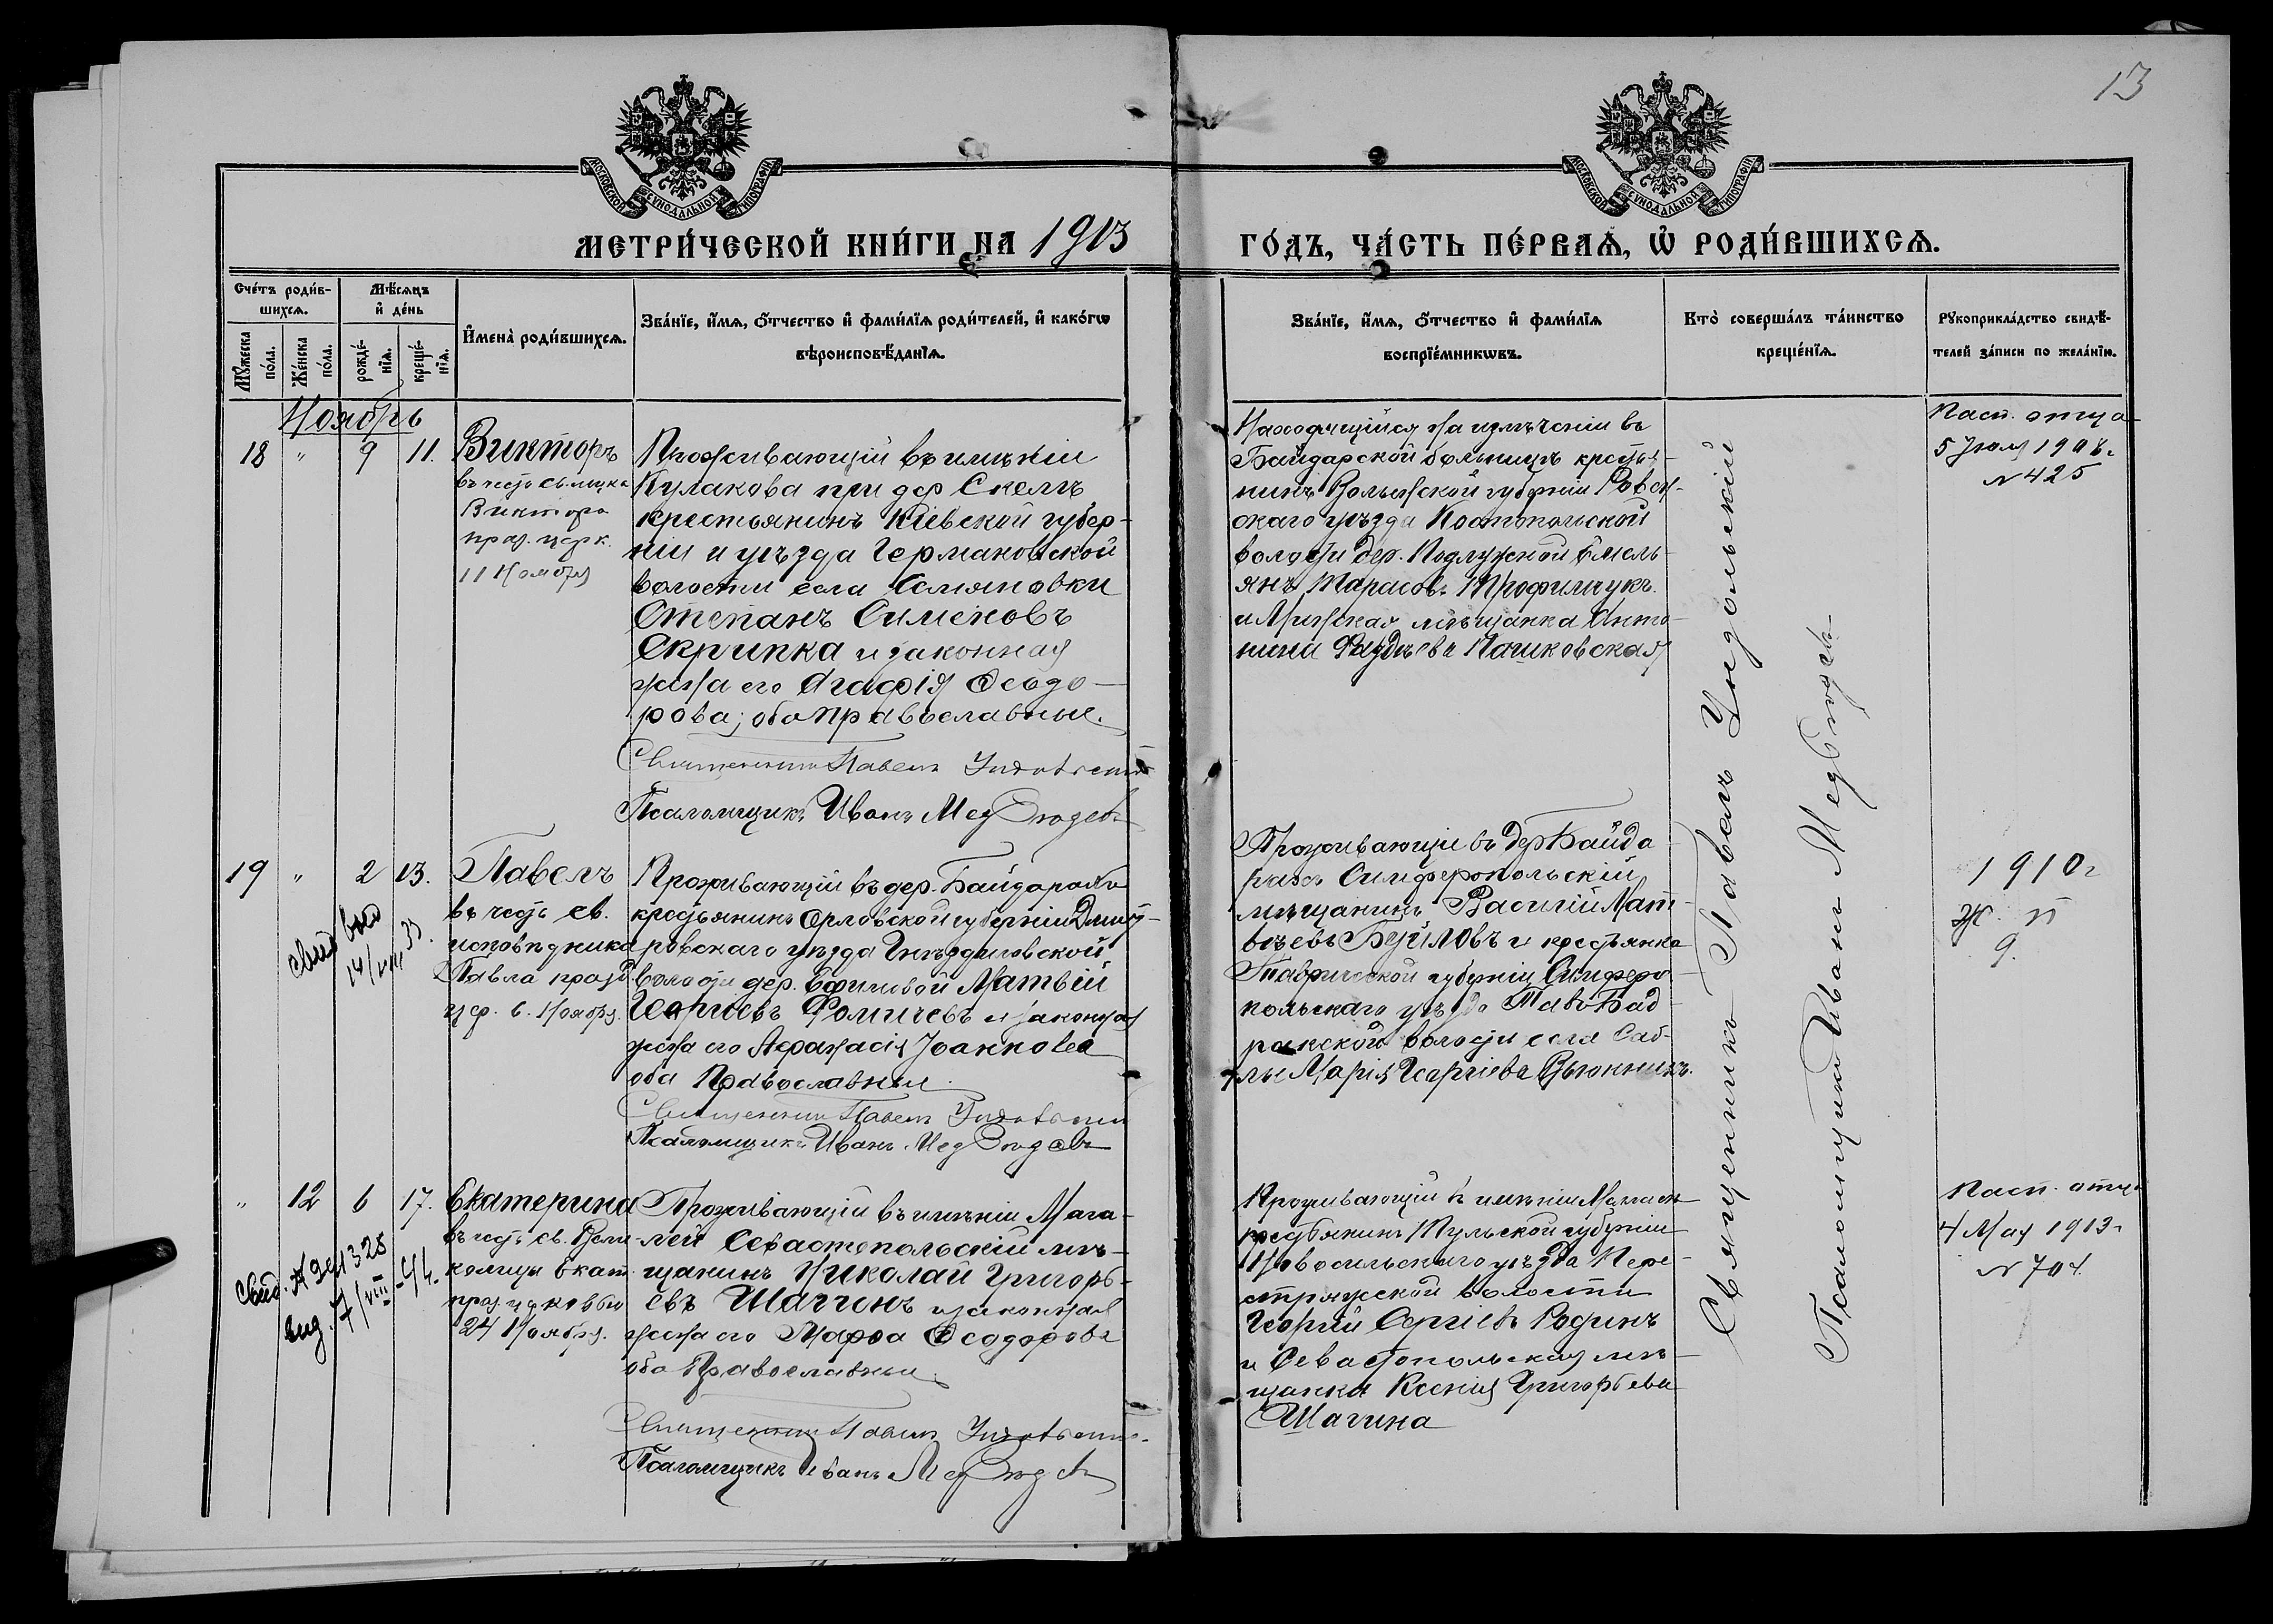 13
МОСКОВСКОЙ СѴНОДАЛЬНОЙ ТИПОГРАФІИ
МОСКОВСКОЙ СѴНОДАЛЬНОЙ ТИПОГРАФІИ
МЕТРИ́ЧЕСКОЙ КНИ́ГИ НА 1913
ГО́ДЪ, ЧА́СТЬ ПЕ́РВАѦ, Ѡ҆ РОДИ́ВШИХСѦ.
Сче́тъ роди́в-
шихсѧ.
Мꙋ́жеска
по́ла.
Же́нска
по́ла.
Мѣ́сѧцъ
и҆ де́нь
рожде́-
нїѧ.
креще́-
нїѧ.
И҆мена̀ роди́вшихсѧ.
Зва́нїе, и҆́мѧ, ѻ҆́тчество и҆ фами́лїѧ роди́телей, и҆ како́гѡ
вѣроисповѣ́данїѧ.
Зва́нїе, и҆́мѧ, ѻ҆́тчество и҆ фами́лїѧ
воспрїе́мникѡвъ.
Кто̀ соверша́лъ та́инство
креще́нїѧ.
Рꙋкоприкла́дство свидѣ́-
телей за́писи по жела́нїю.
Ноябрь
18 " 9 11.
Викторъ
въ честь св. мучка
Виктора
праз. церк.
11 Ноября
Проживающій въ имѣніи
Кулакова при дер Скеляъ
крестьянинъ Кіевской губер-
ніи и уѣзда Германовской
волости села Семяновки
Степанъ Сименовъ
Скрипка и законная
жена его Агафія Ѳеодо-
рова; оба православные.
Священникъ Павелъ Ундольскій
Псаломщикъ Иванъ Медвѣдевъ
Находящійся на излѣченіи въ
Байдарской больницѣ крестья-
нинъ Волынской губерніи Ровен-
скаго уѣзда Костопольской
волости дер. Подлужной Емель-
янъ Тарасовъ Трофимчукъ
и мѣщанка Анто-
нина Фаддѣева Пашковская
Пасп. отца
5 Іюля 1908 г.
N 425
19 " 2 13.
Павелъ
въ честь св.
исповѣдника
Павла празд.
цер. 6. Ноября.
свид выд
14/VIII 33.
Проживающій въ дер. Байдарахъ
крестьянинъ Орловской губерніи Дмит-
ровскаго уѣзда Гнѣздиловской
волости дер. Ефимовой Матвѣй
Георгіевъ Фомичевъ и законная
жена его Афанасія Іоаннова
оба Православные.
Священникъ Павелъ Ундольскій
Псаломщикъ Иванъ Медвѣдевъ
Проживающіе въ дер Байда-
рахъ Симферопольскій
мѣщанинъ Василій Мат-
вѣевъ и крестьянка
Таврической губерніи Симферо-
польскаго уѣзда Тавъ Бад-
ракской волости села Саб-
лы Марія Георгіева Вьюнникъ.
1910 г
9.
" 12 6 17.
Екатерина
въ честь св. Вели-
комуц Екат.
праз. церковью
24 Ноября.
Свид.
выд. 7/VIII
Проживающій въ имѣніи Мага-
лей Севастопольскій мѣ-
щанинъ Николай Григорь-
евъ Шагинъ и законная
жена его Марѳа Ѳеодорова
оба Православные.
Священникъ Павелъ Ундольскій
Псаломщикъ Иванъ Медвѣдевъ
Проживающій въ имѣніи
крестьянинъ Тульской губерніи
Новосильскаго уѣзда Пере-
стряжской волости
Георгій Сергіевъ Родинъ
и Севастопольская мѣ-
щанка Ксенія Григорьева
Шагина
Пасп. отца
4 Мая 1913 г
N 704.
Священникъ Павелъ Ундольскій
Псаломщикъ Иванъ Медвѣдевъ